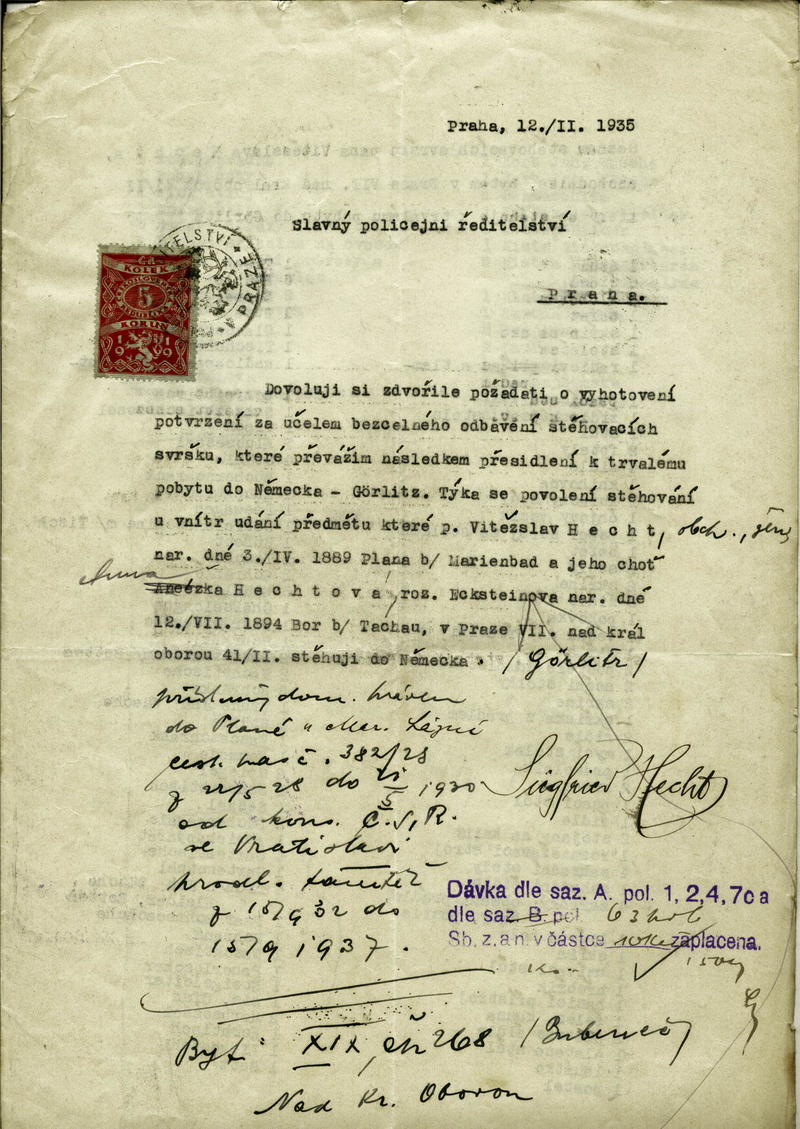 Praha, 12./II. 1935
Slavný policejni ředitelství
Praha.
ITELSTVÍ
V PRAZE
KOLEK
5
KORUN
1919
Dovoluji si zdvořile požádati o vyhotovení
potvrzení za účelem bezcelného odbavéní stěhovacích
svršku, které převážim následkem přesidlení k trvalému
pobytu do Německa - Görlitz. Týka se povolení stěhování
u vnítr udání předmětu které p. Vitěžslav H e c h t, obch.,
nar. dné 3./IV. 1889 Plana b/ Marienbad a jeho choť
Anna
Anežka H e c h t o v á, roz. Ecksteinova nar. dné
12./VII. 1894 Bor b/ Tachau, v Praze VII. nad král
oborou 41/II. stěhuji do Německa. /Görlitz/
dom.
do Plané u Mar. Lázní
cest. pas č. 382/28
z 22/5 28 do 1930
od konz. Č.S.R.
ve Vratislavi
prodl. tamtéž
z 15/9 32 do
15/9 1937.
Siegfried Hecht
Dávka dle saz. A. pol. 1, 2,4, 7c a
dle saz. B. pol. 63
Sb. z. a n. v částce zaplacena.
Byt: XIX, čp 268 /Bubeneč/
Nad Kr. Oborou